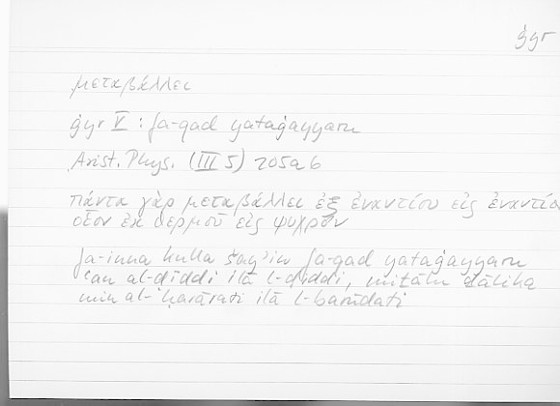 ġyr
μεταβάλλει
ġyr V : fa-qad yataġayyaru
Arist. Phys. (III 5) 205a6
πάντα γὰρ μεταβάλλει ἐξ ἐναντίου εἰς ἐναντίον
οἷον ἐκ θερμοῦ εἰς ψυχρόν
fa-inna kulla šayʾin fa-qad yataġayyaru
ʿan al-ḍiddi ilā l-ḍiddi, miṯālu ḏālika
min al-ḥarārati ilā l-barūdati